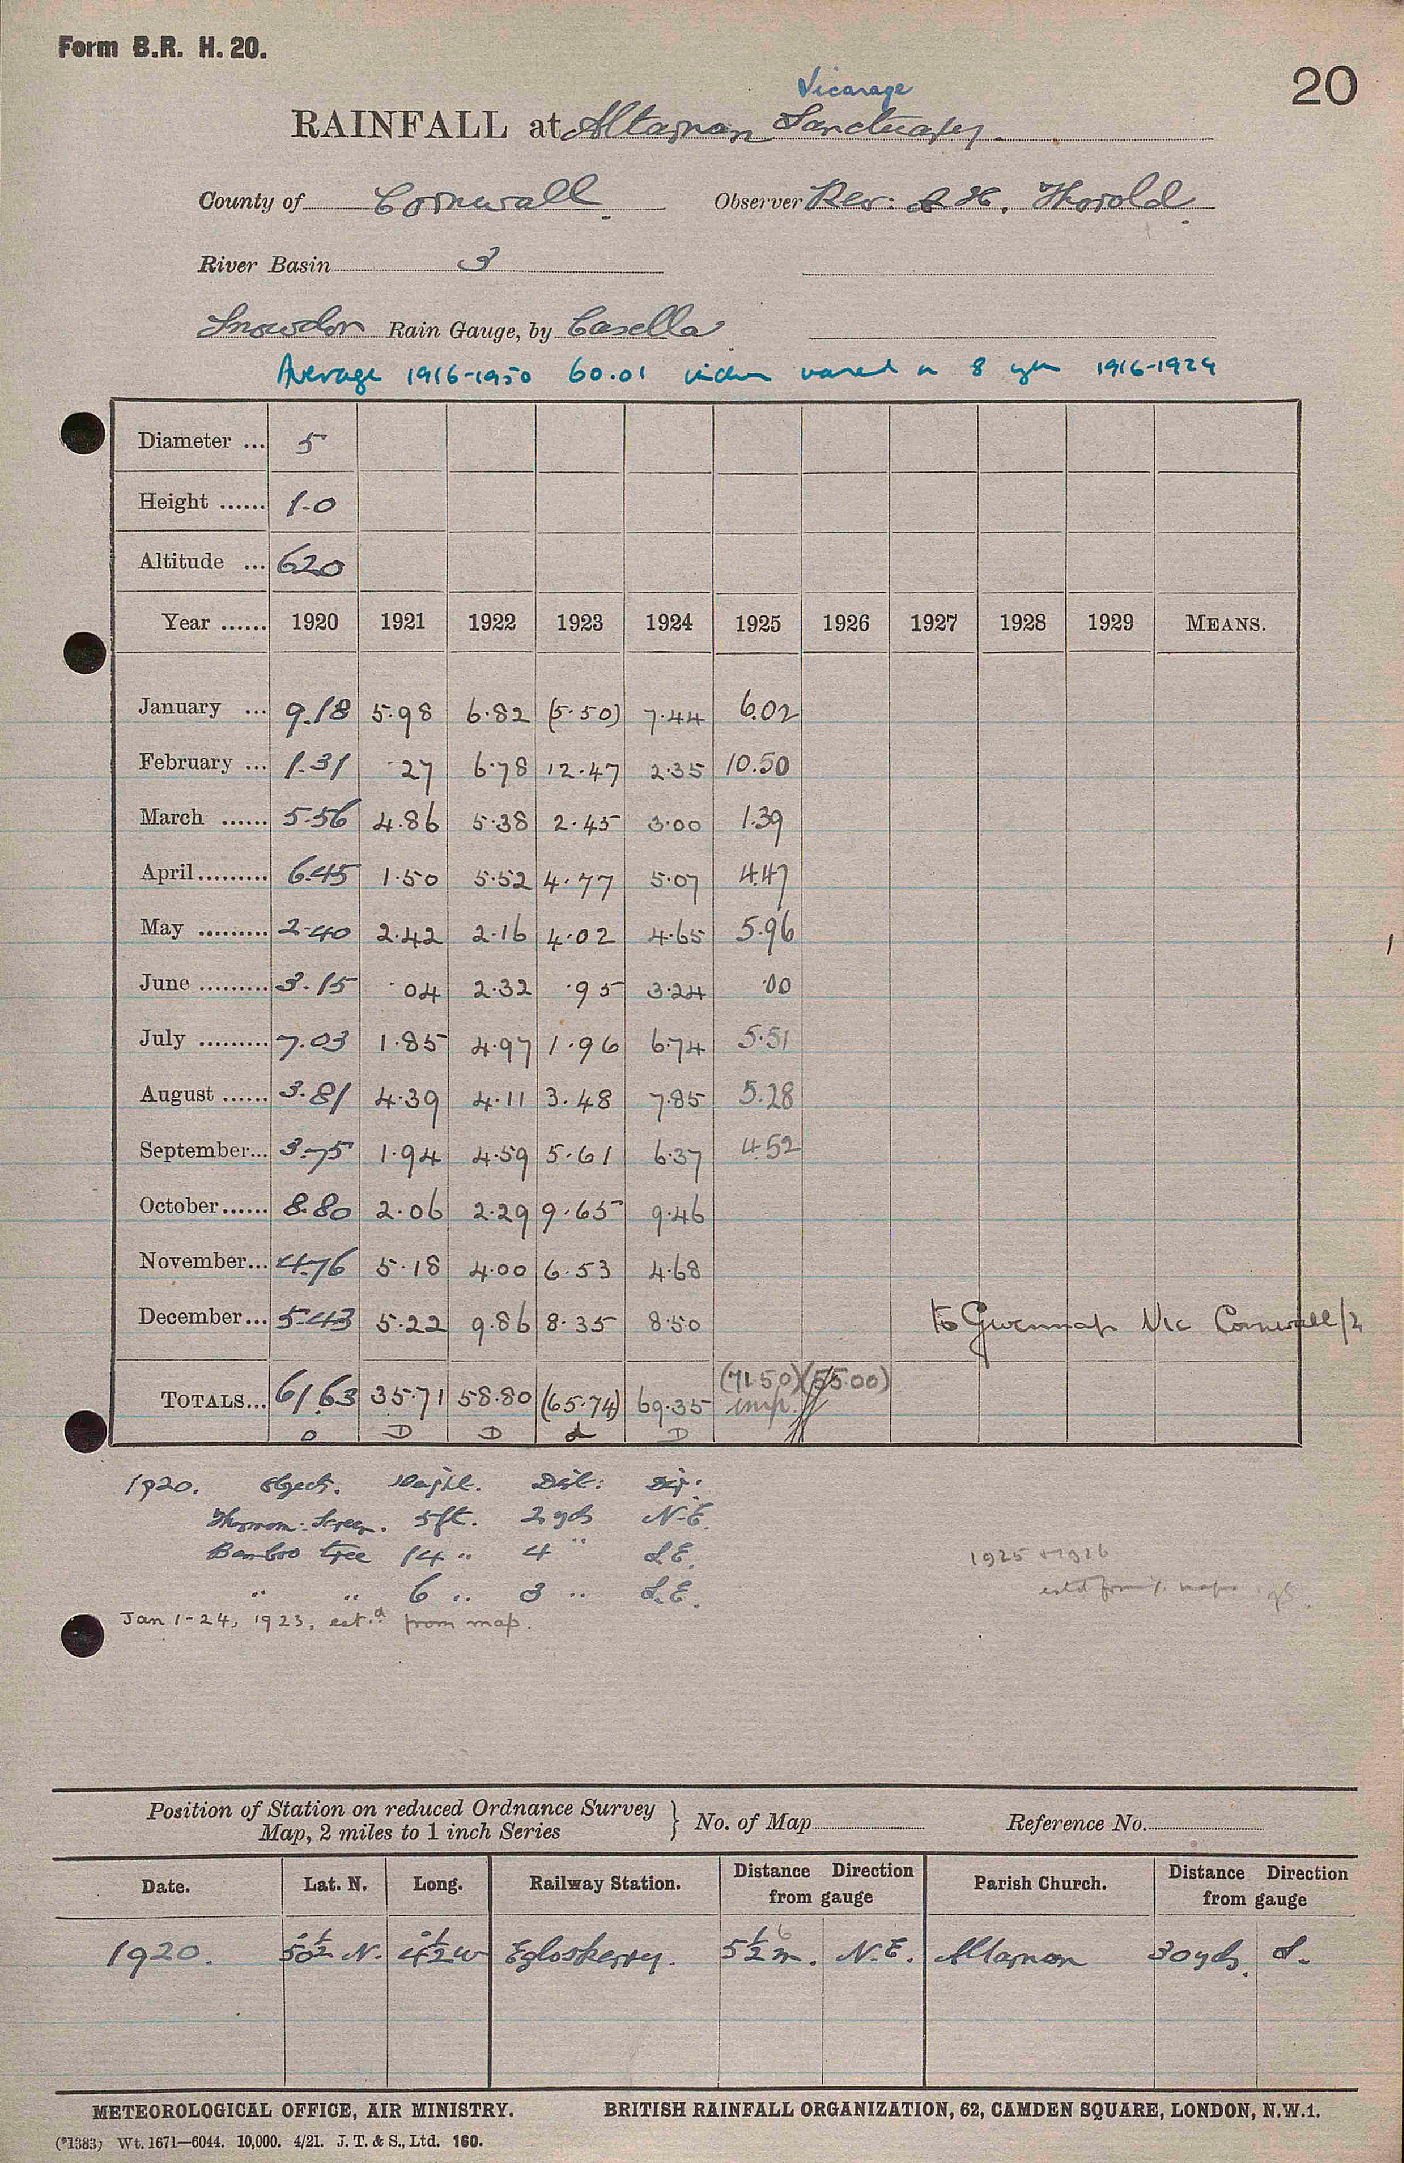 Form B.R. H. 20.
20
Vicarage
RAINFALL at Altarnan Sanctuary.
County of Cornwall. Observer Rev. A H. Thorold.
River Basin 3
Snowdon Rain Gauge, by Casella.
Average 1916-1950 60.01 inches based on 8 yrs 1916-1924
Diameter ... 5
Height ...... 1.0
Altitude ... 620
Year ...... 1920 1921 1922 1923 1924 1925 1926 1927 1928 1929 MEANS.
January ... 9.18 5.98 6.82 (5.50) 7.44 6.02
February ... 1.31 .27 6.78 12.47 2.35 10.50
March ...... 5.56 4.86 5.38 2.45 3.00 1.39
April ......... 6.45 1.50 5.52 4.77 5.07 4.47
May ......... 2.40 2.42 2.16 4.02 4.65 5.96
June ......... 3.15 .04 2.32 .95 3.24 .00
July ......... 7.03 1.85 4.97 1.96 6.74 5.51
August ...... 3.81 4.39 4.11 3.48 7.85 5.28
September... 3.75 1.94 4.59 5.61 6.37 4.52
October...... 8.80 2.06 2.29 9.65 9.46
November... 4.76 5.18 4.00 6.53 4.68
December... 5.43 5.22 9.86 8.35 8.50 to Gwennap Vic Cornwall/2
TOTALS... 61.63 35.71 58.80 (65.74) 69.35 (71.50) (55.00)
imp.
D D D d D
1920. Object. Height. Dist: Dir:
Thermom: Screen. 5ft. 2 yds N.E.
Bamboo tree 14 " 4 " S.E.
" " 6 " 3 " S.E.
Jan 1-24, 1923, est.d from map.
1925 + 1926
estd from % maps
Position of Station on reduced Ordnance Survey Map, 2 miles to 1 inch Series } No. of Map Reference No.
Date. Lat. N. Long. Railway Station. Distance Direction from gauge Parish Church. Distance Direction from gauge
1920. 50½° N. 4½° W Egloskerry. 5½ m. 6 N.E. Altarnon 30 yds. S.
METEOROLOGICAL OFFICE, AIR MINISTRY. BRITISH RAINFALL ORGANIZATION, 62, CAMDEN SQUARE, LONDON, N.W.1.
(*1383) Wt. 1671—6044. 10,000. 4/21. J. T. & S., Ltd. 160.